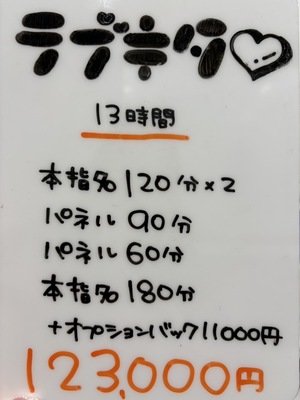 ラブホタ♡
13時間
本指名120分×2
パネル 90分
パネル 60分
本指名 180分
+オプションバック11000円
123,000円